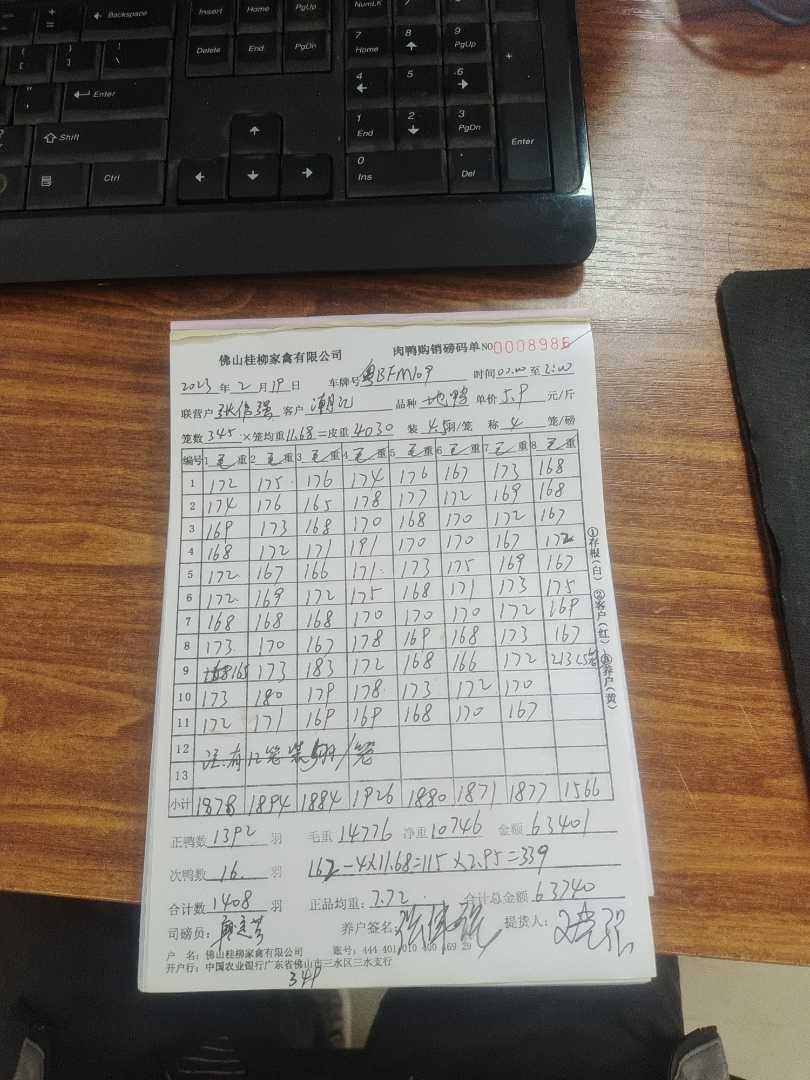 ← Backspace Insert Home PgUp NumLK
Delete End PgDn 7 Home 8 9 PgUp +
← Enter 4 5 6
Shift 1 End 2 3 PgDn Enter
Ctrl 0 Ins . Del
佛山桂柳家禽有限公司 肉鸭购销磅码单 NO 0008985
2023 年 2 月 19 日 车牌号 粤BFM109 时间 00:00 至 2:00
联营户 客户 潮记 品种 地鸭 单价 5.9 元/斤
笼数 345 ×笼均重 11.68 =皮重 4030 装 羽/笼 称 4 笼/磅
编号 1 毛重 2 毛重 3 毛重 4 毛重 5 毛重 6 毛重 7 毛重 8 毛重
1 172 175 176 174 176 167 173 168
2 174 176 165 178 177 172 169 168
3 169 173 168 170 168 170 172 167
4 168 172 171 191 170 170 167 172
5 172 167 166 171 173 175 169 167
6 172 169 172 175 168 171 173 175
7 168 168 168 170 170 170 172 169
8 173 170 167 178 169 168 173 167
9 165 173 183 172 168 166 172 213 5笼
10 173 180 179 178 173 172 170
11 172 171 169 169 168 170 167
12 注:有12笼装 羽/笼
13
小计 1878 1894 1884 1926 1880 1871 1877 1566
①存根(白) ②客户(红) ③养户(黄)
正鸭数 1392 羽 毛重 14776 净重 10746 金额 63401
次鸭数 16 羽 162-4×11.68=115×2.95=339
合计数 1408 羽 正品均重: 7.72 合计总金额 63740
司磅员: 养户签名: 提货人:
户 名: 佛山桂柳家禽有限公司 账号: 444 401 010 400 169 29
开户行: 中国农业银行广东省佛山市三水区三水支行
349